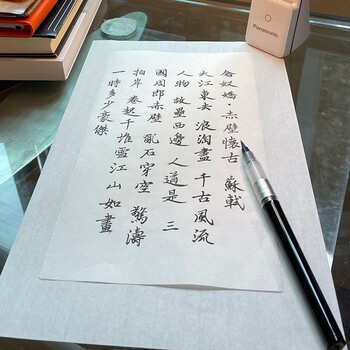 念奴嬌·赤壁懷古 蘇軾
大江東去 浪淘盡 千古風流
人物 故壘西邊 人道是 三
國周郎赤壁 亂石穿空 驚濤
拍岸 卷起千堆雪 江山如畫
一時多少豪傑
Panasonic